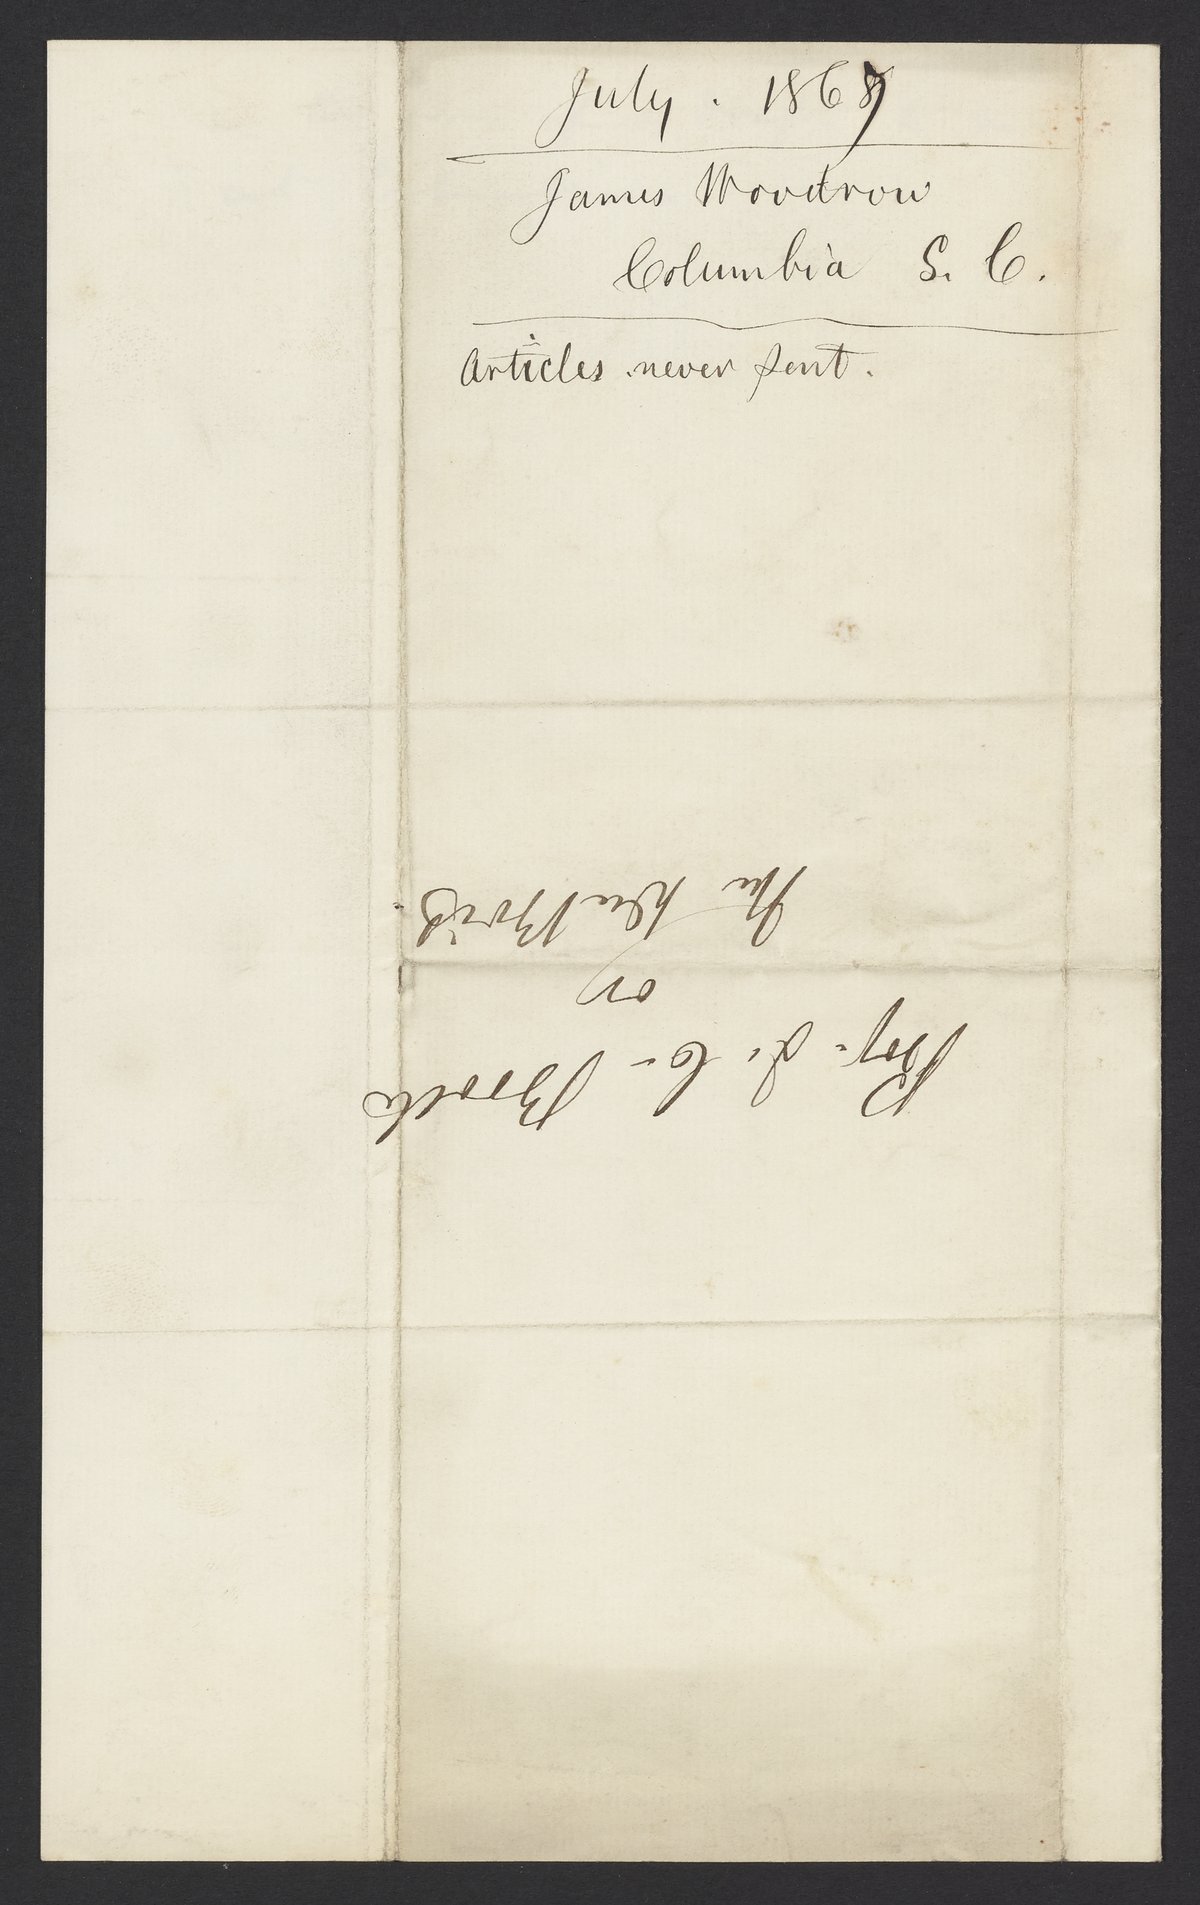 July. 1867
James Woodrow
Columbia S. C.
Articles never sent.
Prof. J. C. Booth
or